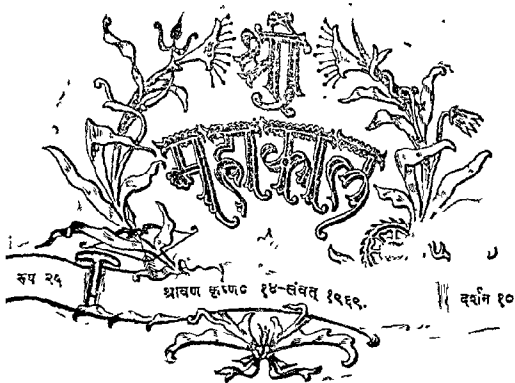 श्री
महाकाल
रुप २५ श्रावण कृष्ण १४-संवत् १९६९. दर्शन १०